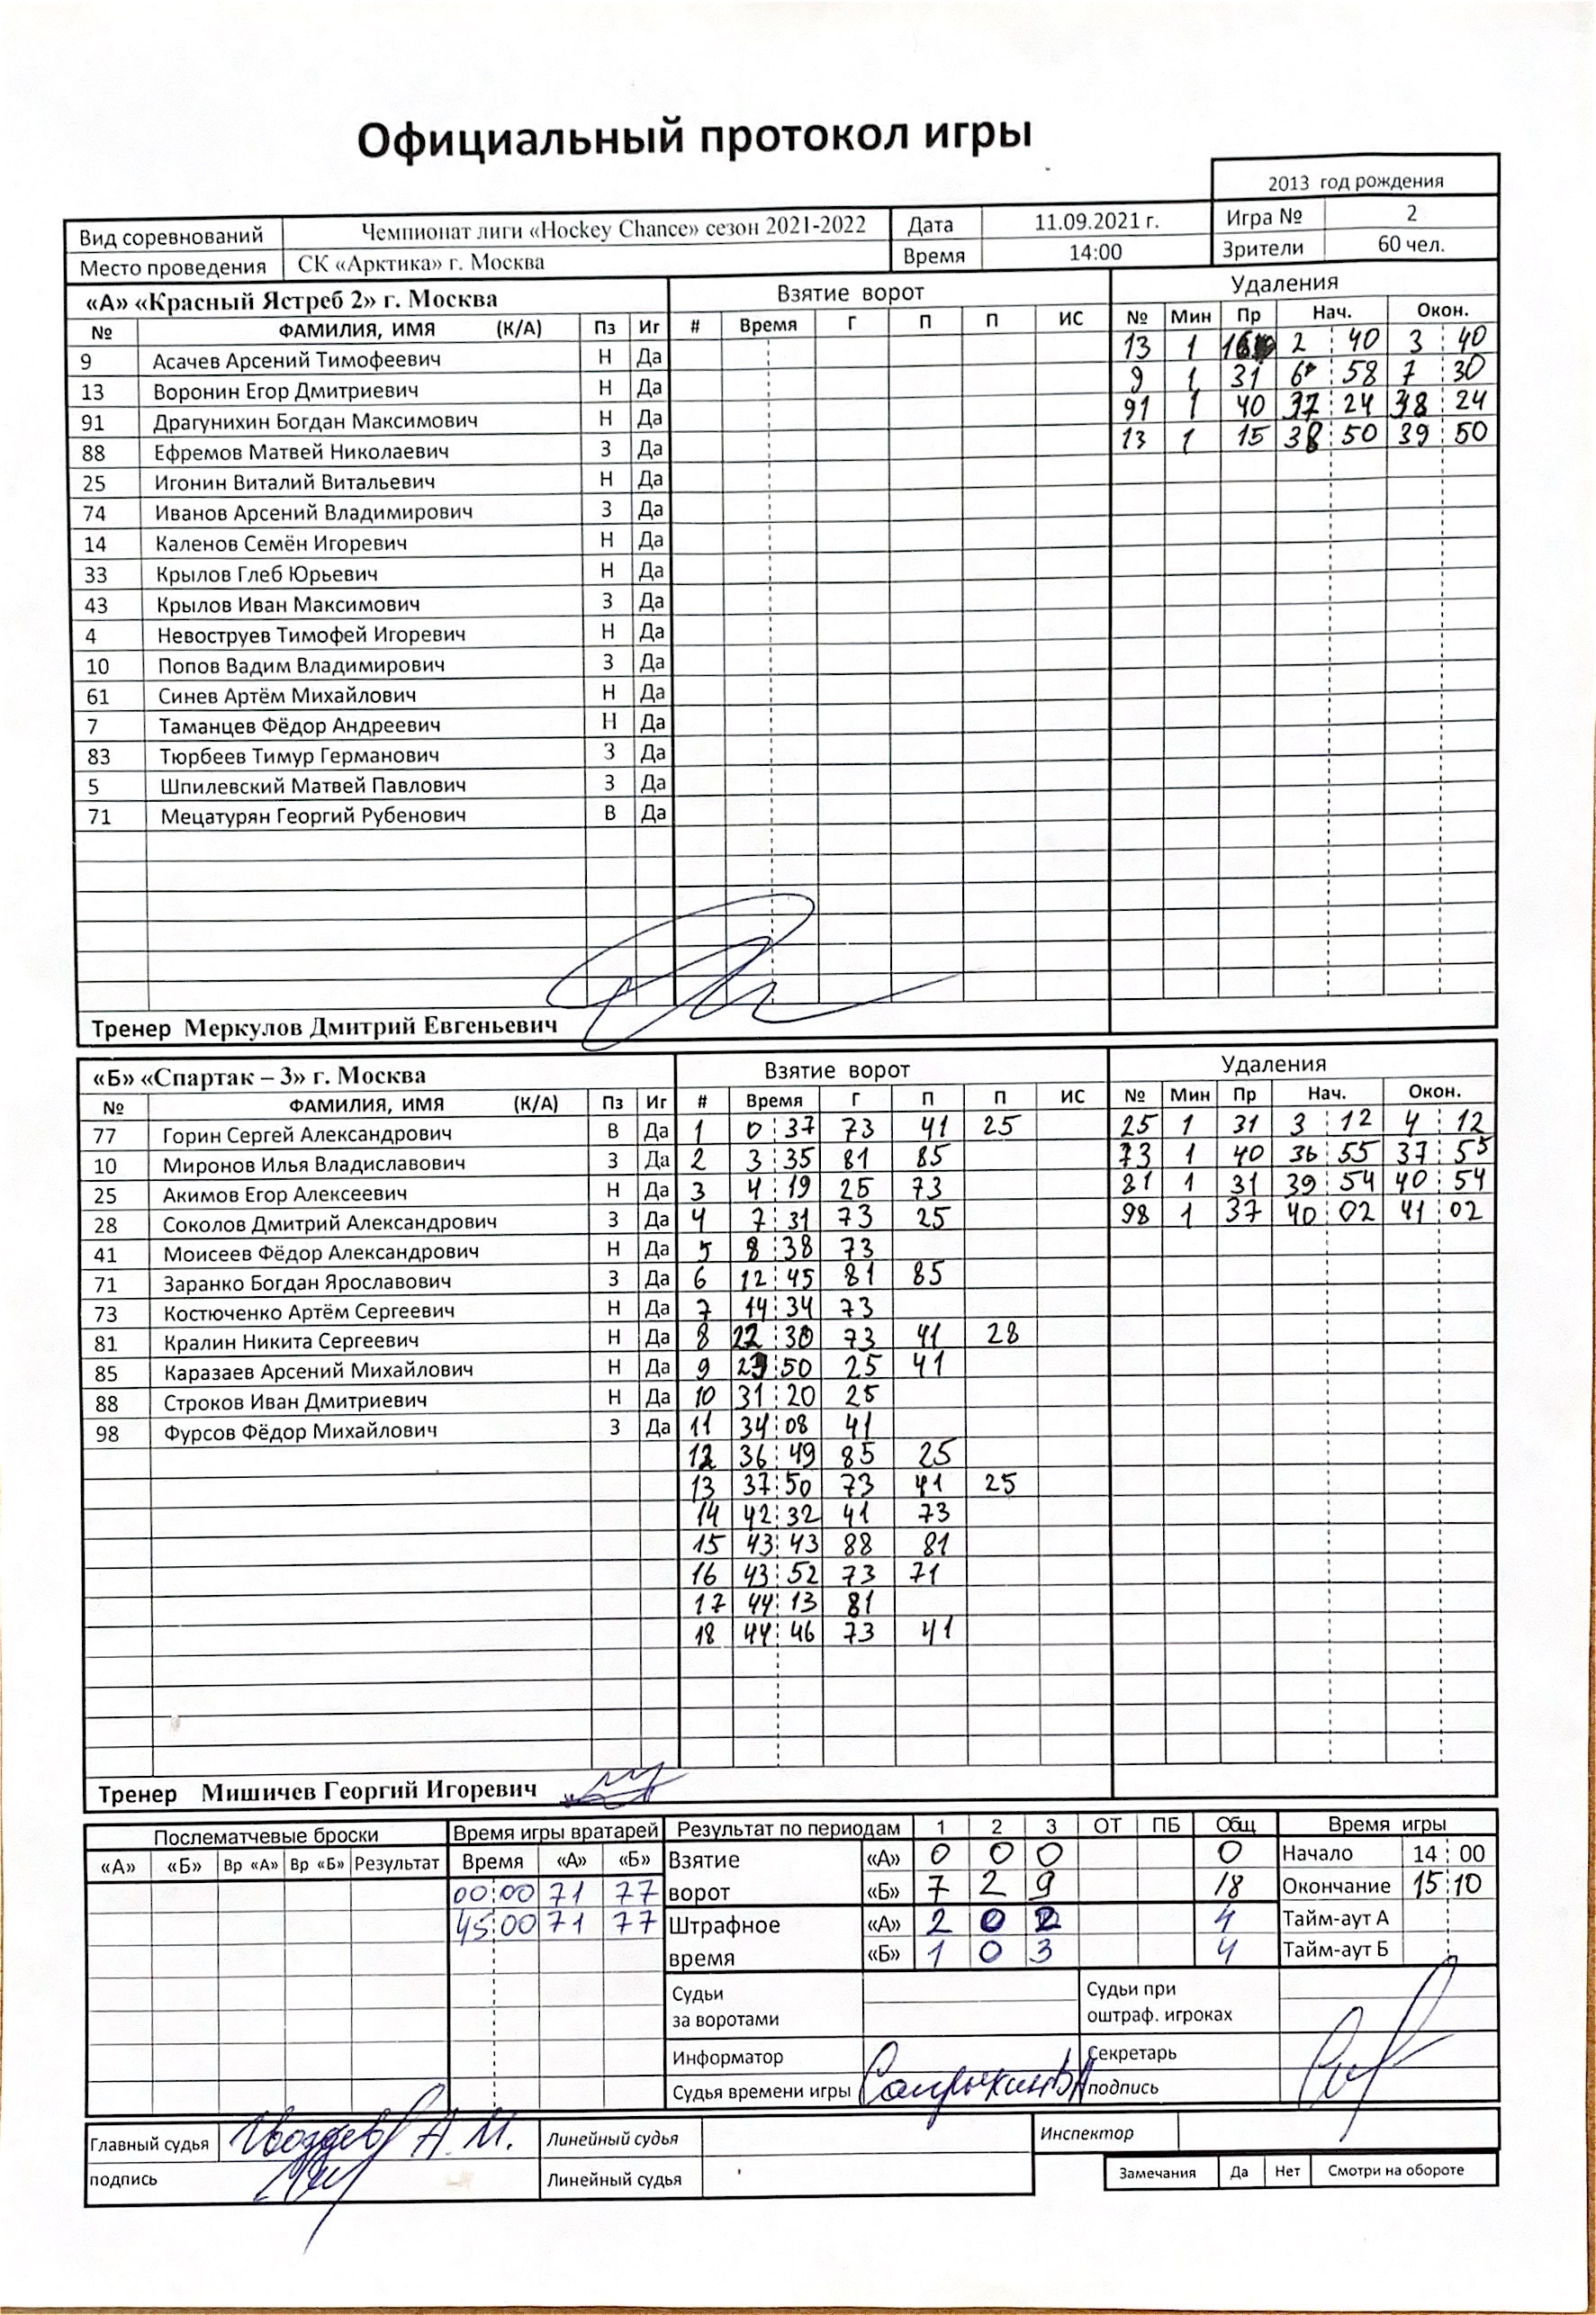 Официальный протокол игры
2013 год рождения
Вид соревнований Чемпионат лиги «Hockey Chance» сезон 2021-2022 Дата 11.09.2021 г. Игра № 2
Место проведения СК «Арктика» г. Москва Время 14:00 Зрители 60 чел.
«А» «Красный Ястреб 2» г. Москва Взятие ворот Удаления
№ ФАМИЛИЯ, ИМЯ (К/А) Пз Иг # Время Г П П ИС № Мин Пр Нач. Окон.
9 Асачев Арсений Тимофеевич Н Да 13 1 2 40 3 40
13 Воронин Егор Дмитриевич Н Да 9 1 31 6 58 7 30
91 Драгунихин Богдан Максимович Н Да 91 1 40 37 24 38 24
88 Ефремов Матвей Николаевич З Да 13 1 15 38 50 39 50
25 Игонин Виталий Витальевич Н Да
74 Иванов Арсений Владимирович З Да
14 Каленов Семён Игоревич Н Да
33 Крылов Глеб Юрьевич Н Да
43 Крылов Иван Максимович З Да
4 Невоструев Тимофей Игоревич Н Да
10 Попов Вадим Владимирович З Да
61 Синев Артём Михайлович Н Да
7 Таманцев Фёдор Андреевич Н Да
83 Тюрбеев Тимур Германович З Да
5 Шпилевский Матвей Павлович З Да
71 Мецатурян Георгий Рубенович В Да
Тренер Меркулов Дмитрий Евгеньевич
«Б» «Спартак – 3» г. Москва Взятие ворот Удаления
№ ФАМИЛИЯ, ИМЯ (К/А) Пз Иг # Время Г П П ИС № Мин Пр Нач. Окон.
77 Горин Сергей Александрович В Да 1 0 37 73 41 25 25 1 31 3 12 4 12
10 Миронов Илья Владиславович З Да 2 3 35 81 85 73 1 40 36 55 37 55
25 Акимов Егор Алексеевич Н Да 3 4 19 25 73 81 1 31 39 54 40 54
28 Соколов Дмитрий Александрович З Да 4 7 31 73 25 98 1 37 40 02 41 02
41 Моисеев Фёдор Александрович Н Да 5 8 38 73
71 Заранко Богдан Ярославович З Да 6 12 45 81 85
73 Костюченко Артём Сергеевич Н Да 7 14 34 73
81 Кралин Никита Сергеевич Н Да 8 22 30 73 41 28
85 Каразаев Арсений Михайлович Н Да 9 29 50 25 41
88 Строков Иван Дмитриевич Н Да 10 31 20 25
98 Фурсов Фёдор Михайлович З Да 11 34 08 41
12 36 49 85 25
13 37 50 73 41 25
14 42 32 41 73
15 43 43 88 81
16 43 52 73 71
17 44 13 81
18 44 46 73 41
Тренер Мишичев Георгий Игоревич
Послематчевые броски Время игры вратарей Результат по периодам 1 2 3 ОТ ПБ Общ Время игры
«А» «Б» Вр «А» Вр «Б» Результат Время «А» «Б» Взятие «А» 0 0 0 0 Начало 14 00
00 00 71 77 ворот «Б» 7 2 9 18 Окончание 15 10
45 00 71 77 Штрафное «А» 2 0 2 4 Тайм-аут А
время «Б» 1 0 3 4 Тайм-аут Б
Судьи за воротами Судьи при оштраф. игроках
Информатор Секретарь
Судья времени игры подпись
Главный судья Гвоздев А.М. Линейный судья Инспектор
подпись Линейный судья Замечания Да Нет Смотри на обороте